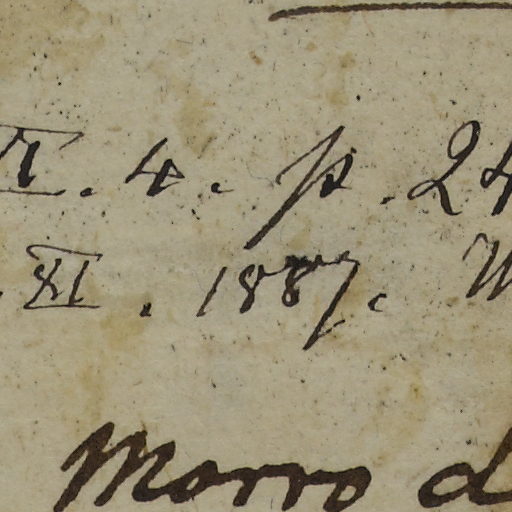 VI. 4. p. 24
. XI. 1887.
Morro d